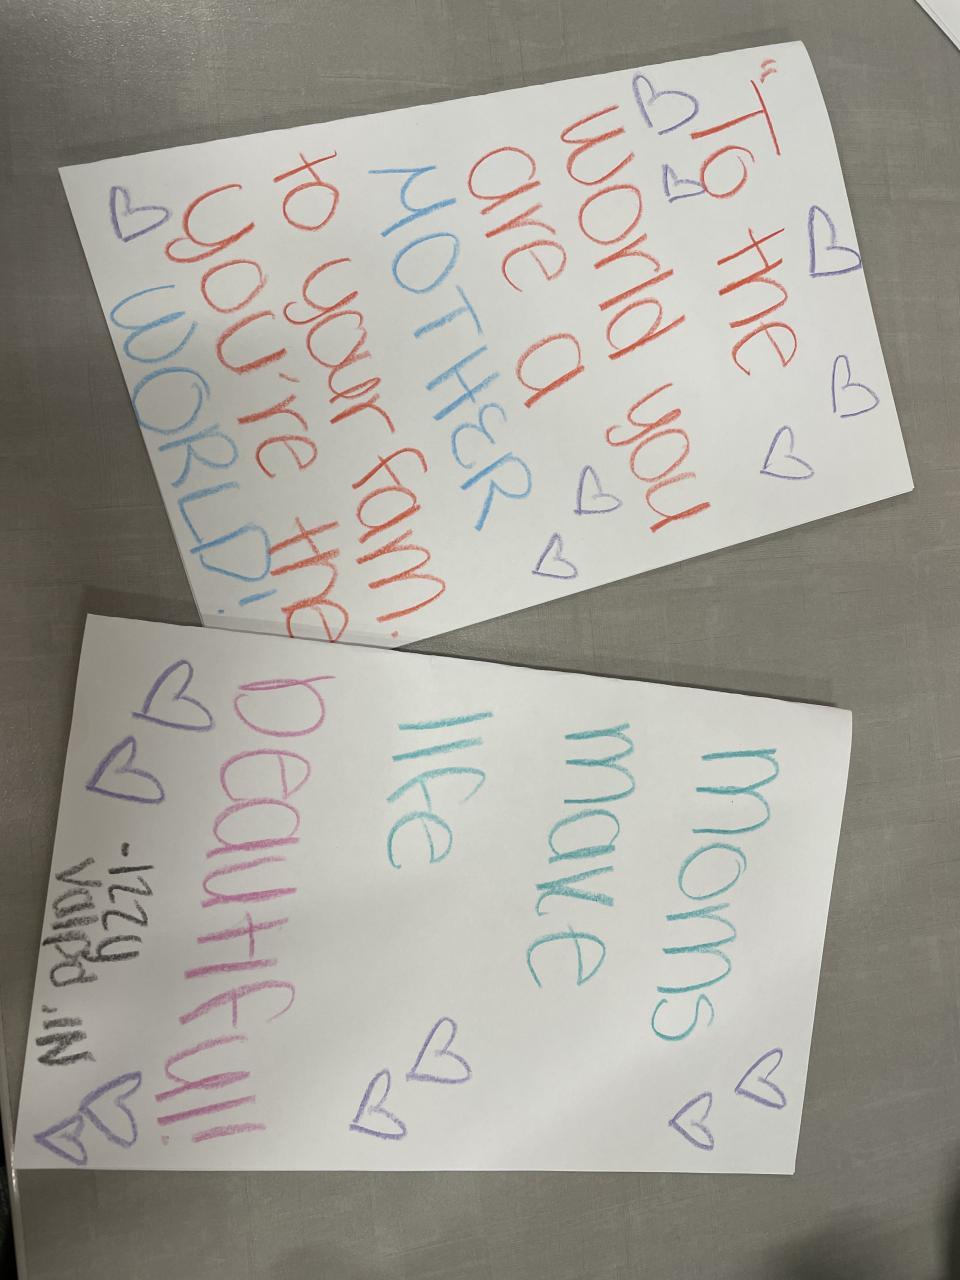 "To the
world you
are a
MOTHER
to your fam.
you're the
WORLD!
moms
make
life
beautiful!
-Izzy
Valpo, IN